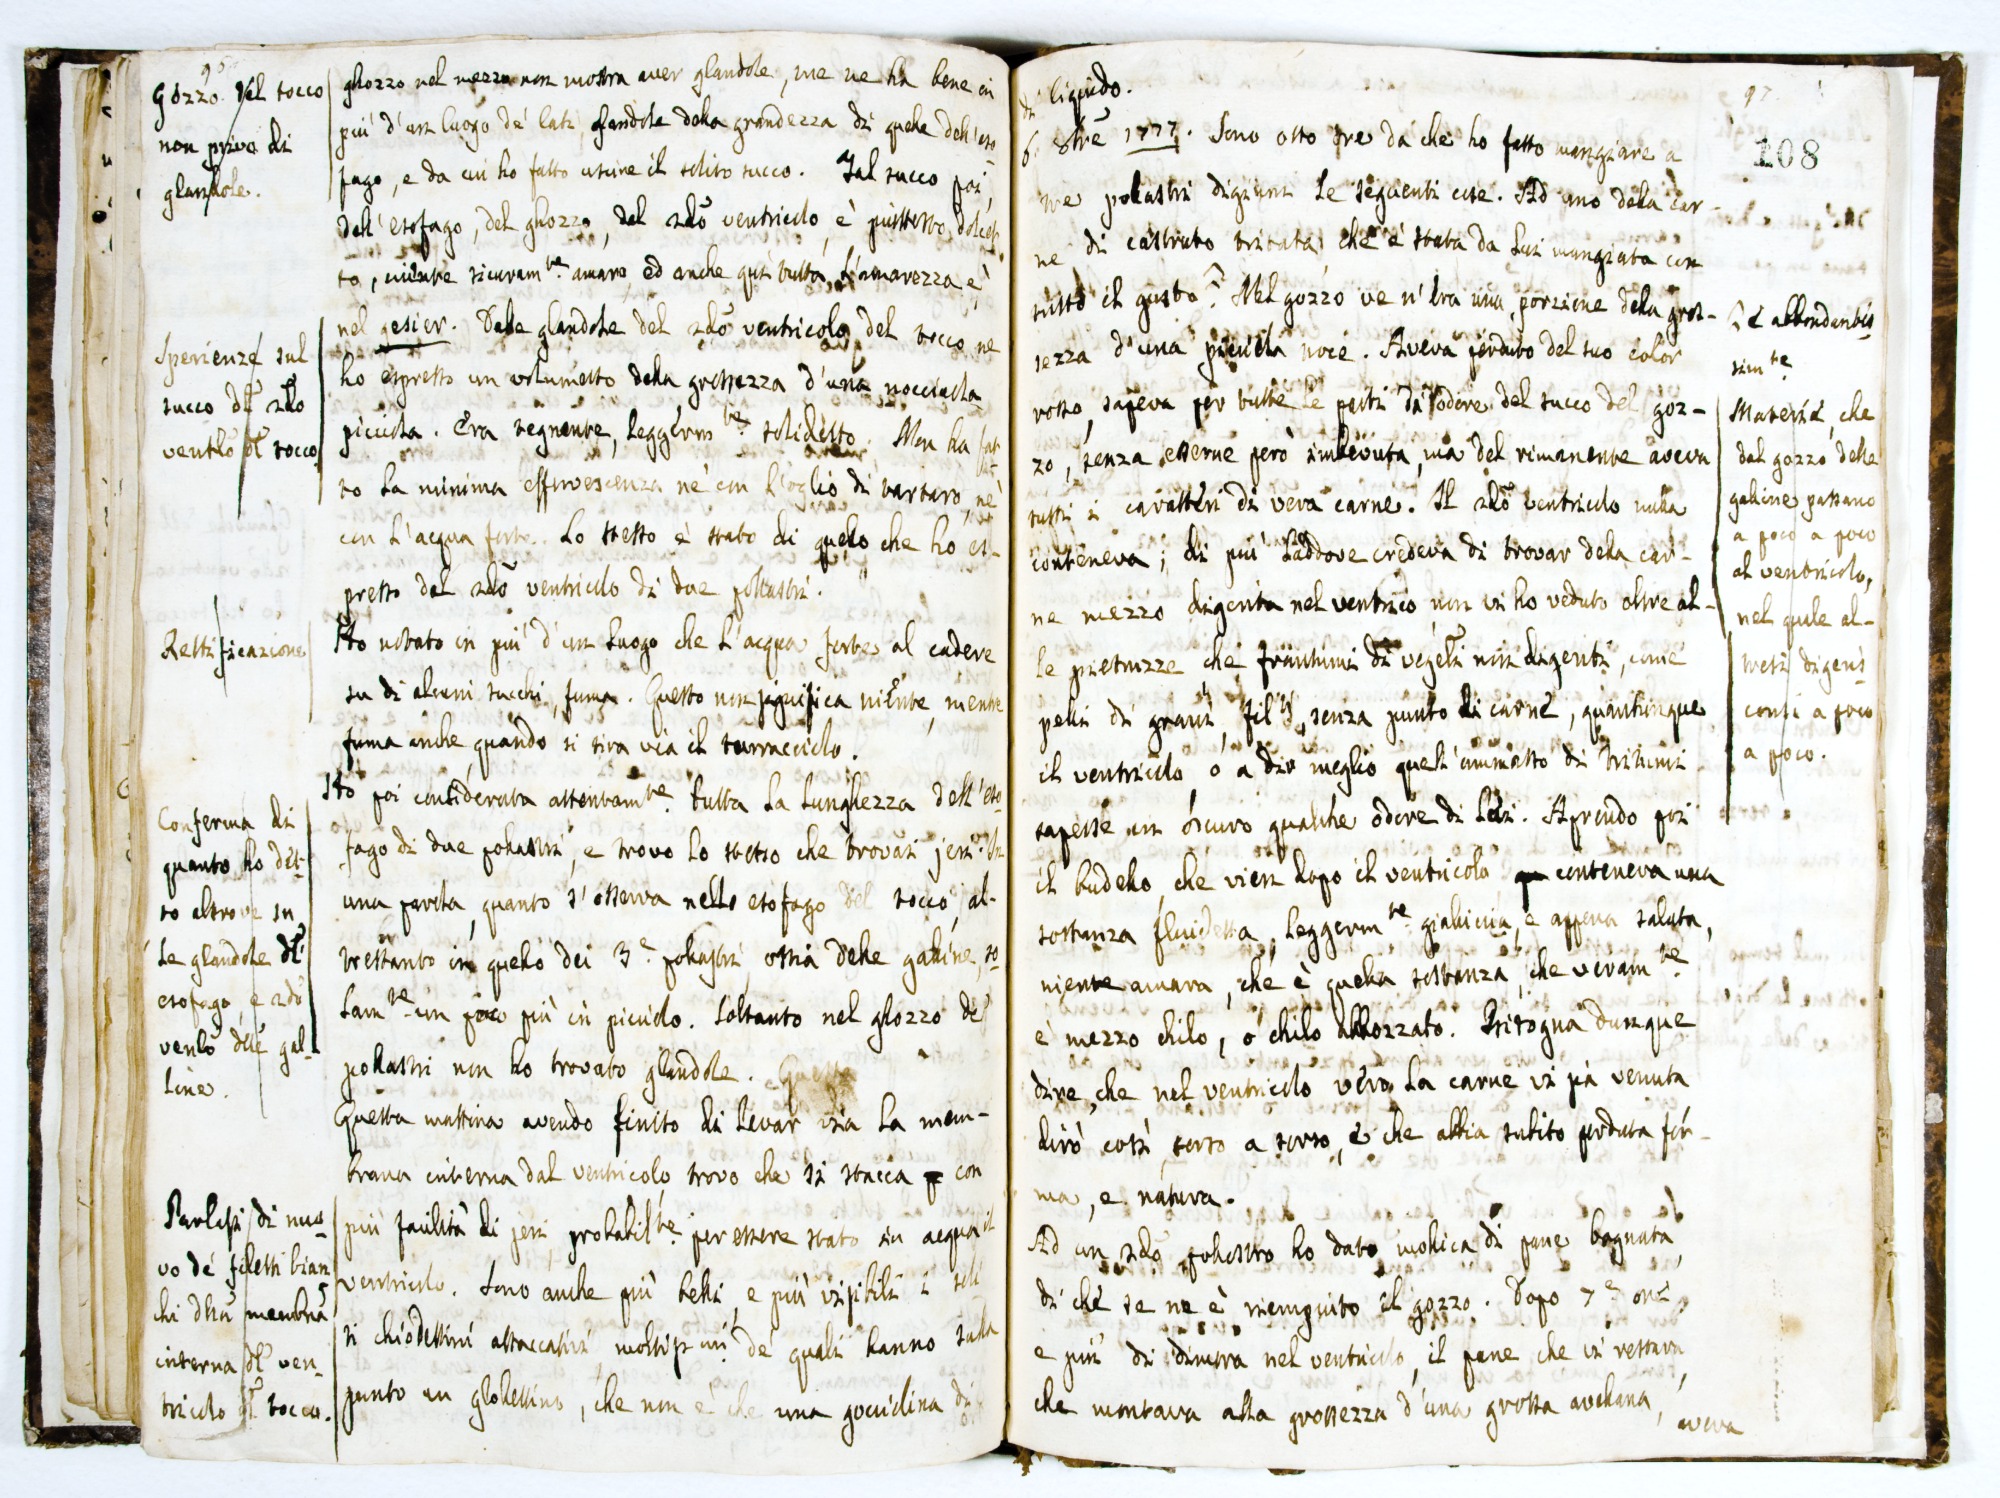 96
Gozzo del tocco
non privo di
glandole.
ghozzo nel mezzo non mostra aver glandole, me ne ha bene in
più d'un luogo de' lati glandole della grandezza di quelle dell'eso-
fago, e da cui ho fatto uscire il solito succo. Tal succo poi,
dell'esofago, del ghozzo, del 2do ventricolo, è piuttosto dolcet-
to, niente sicuramte amaro, ed anche qui tutta l'amarezza è
nel gesier. Dalle glandole del 2do ventricolo del tocco ne
ho espresso un volumetto della grossezza d'una nocciuola
picciola. Era tegnente, leggermte solidetto. Non ha fat-
to la minima effervescenza nè con l'oglio di tartaro, nè
con l'acqua forte. Lo stesso è stato di quello che ho es-
presso dal 2do ventricolo di due pollastri.
Sperienze sul
succo dl 2do
ventlo dl tocco.
Ho notato in più d'un luogo che l'acqua forte al cadere
su di alcuni succhi, fuma. Questo non significa niente, mentre
fuma anche quando si tira via il turracciolo.
Rettificazione
Ho poi considerata attentamte tutta la lunghezza dell'eso-
fago di due pollastri, e trovo lo stesso che trovai jeri. In
una parola quanto s'osserva nello esofago del tocco, al-
trettanto in quello dei 3e pollastri ossia delle galline, so-
lamte un poco più in picciolo. Soltanto nel ghozzo de'
pollastri non ho trovato glandole.
Conferma di
quanto ho det-
to altrove su
le glandole dl'
esofago, e 2do
ventlo dlle gal-
line.
Questa mattina avendo finito di levar via la mem-
brana interna dal ventricolo trovo che si stacca con
più facilità di jeri, probabilte per essere stato in acqua il
ventricolo. Sono anche più belli, e più visibili i soli-
ti chiodettini attaccativi moltiplimi de' quali hanno sulla
punto un globettino, che non è che una gocciolina di
Parlasi di nuo-
vo de' filetti bian-
chi dlla membra
interna dl ven-
tricolo dl tocco.
97
108
di liquido.
6 8bre 1777. Sono otto ore da che ho fatto mangiare a
tre pollastri digiuni le seguenti cose. Ad uno della car-
ne di castrato tritata che è stata da lui mangiata con
tutto il gusto ^. Nel gozzo ve n'era una porzione della gros-
sezza d'una picciola noce. Aveva perduto del suo color
rosso, sapeva per tutte le parti da odore del succo del goz-
zo, senza esserne però imbevuta, ma del rimanente aveva
tutti i caratteri di vera carne. Il 2do ventricolo nulla
conteneva; di più laddove credeva di trovar della car-
ne mezzo digerita nel ventrico, non vi ho veduto oltre al-
le pietruzze che frantumi di vegeli non digeriti, come
pelli di grani, filli, senza punto di carne, quantunque
il ventricolo, o a dir meglio quell'ammasso di tritumi
sapesse un oscuro qualche odore di lei. Aprendo poi
il budello, che vien dopo il ventricolo conteneva una
sostanza fluidetta, leggermte gialliccia, e appena salata,
niente amara, che è quella sostanza, che veramte
è mezzo chilo, o chilo abbozzato. Bisogna dunque
dire, che nel ventricolo vero la carne vi sia venuta
dirò così sorso a sorso, e che abbia subito perduta for-
ma, e natura.
^ e abbondantis
simte
Materie, che
dal gozzo delle
galline passano
a poco a poco
al ventricolo,
nel quale al-
tresì digeris
consi a poco
a poco.
Ad un 2do pollastro ho dato mollica di pane bagnata,
di che se ne è riempiuto il gozzo. Dopo 7e ore,
e più di dimora nel ventricolo, il pane che vi restava,
che montava alla grossezza d'una grossa avellana,
aveva